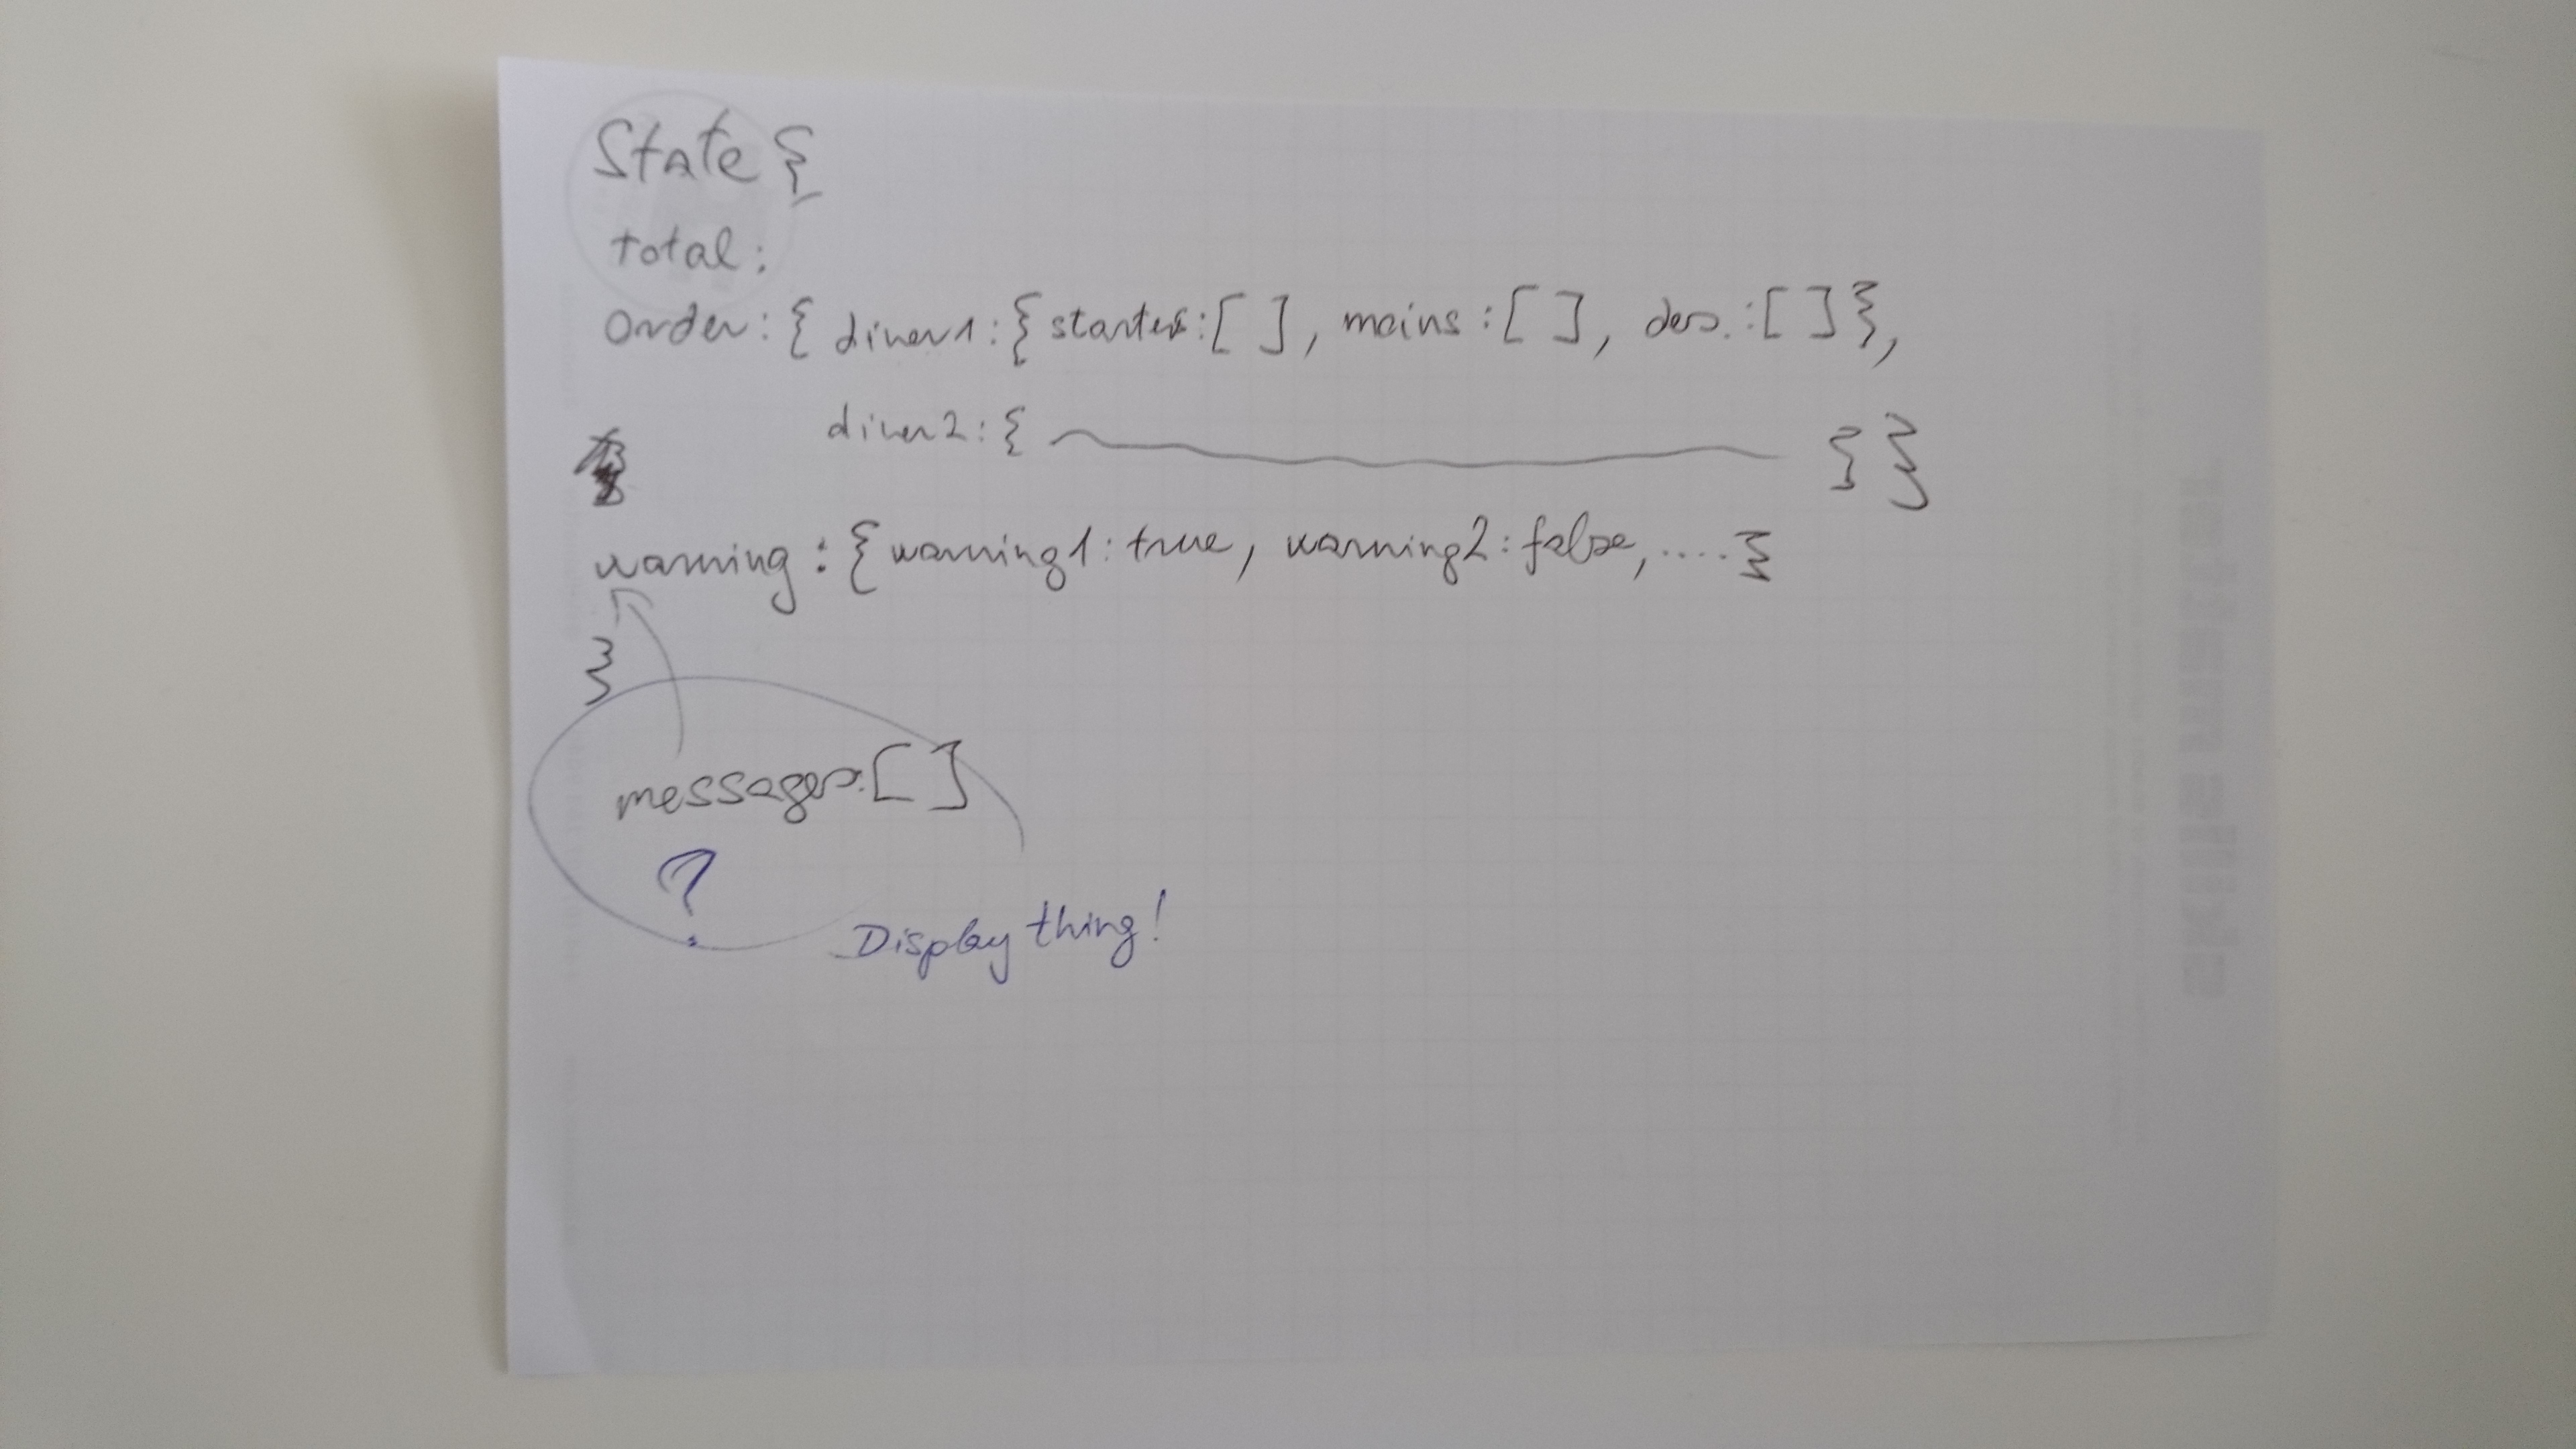 State {
total:
Order: { diner1: { starters: [ ], mains: [ ], des.: [ ] },
diner2: { } }
warning: { warning1: true, warning2: false, .... }
}
messages: [ ]
?
Display thing!